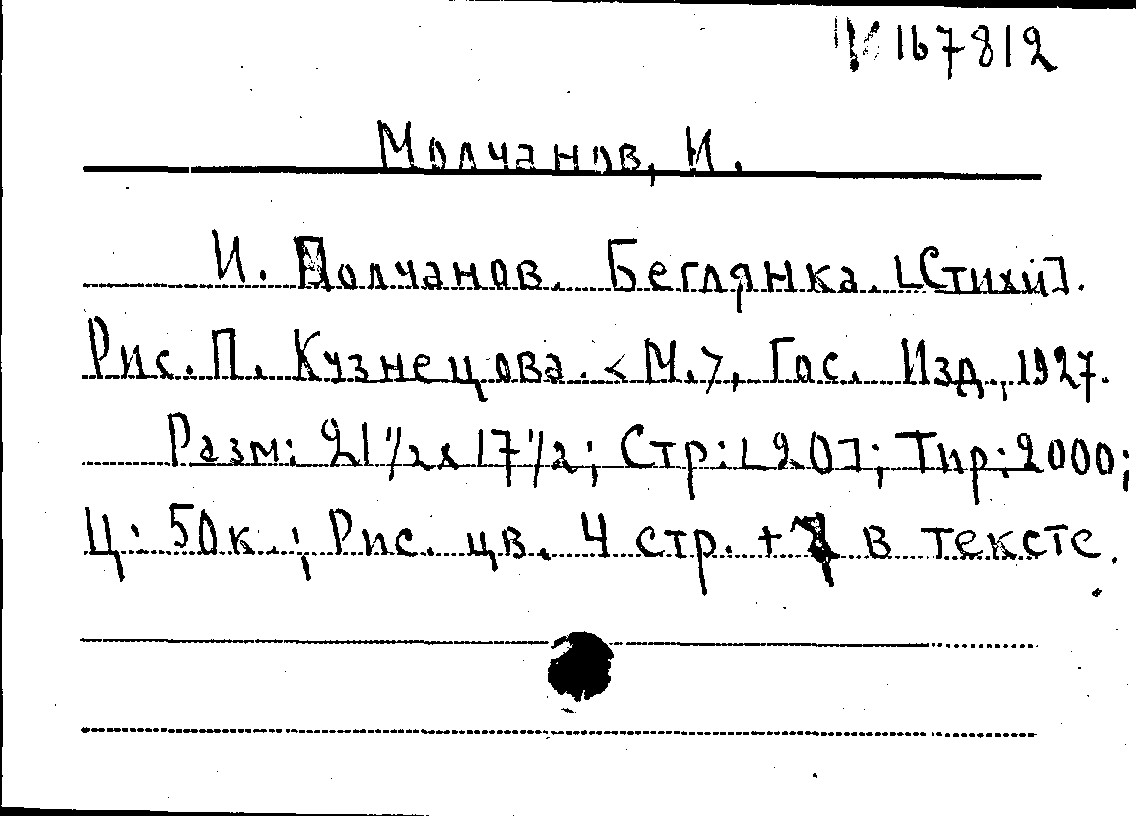 167812
Молчанов, И.
И. Молчанов. Беглянка. [Стихи].
Рис. П. Кузнецова. <М.>, Гос. Изд., 1927.
Разм: 21 1/2 x 17 1/2; Стр: [20]; Тир: 2000;
Ц: 50 к.; Рис. цв. 4 стр. + в тексте.